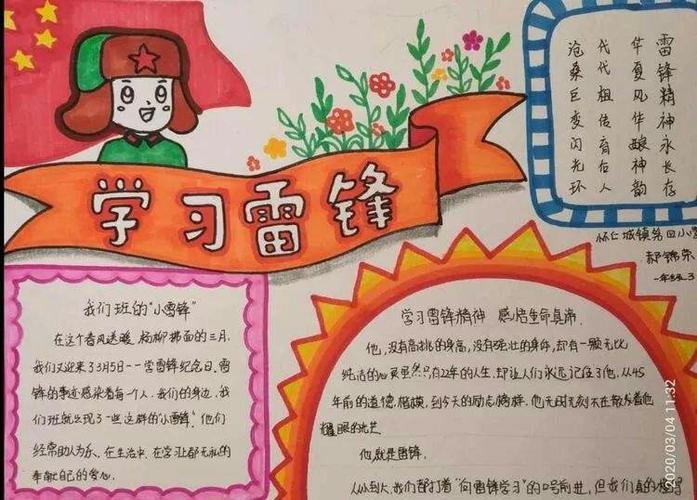 学习雷锋
雷锋精神永长存
华夏风华酿神韵
代代祖传育后人
沧桑巨变闪光环
怀仁城镇第四小学
一年级3
我们班的"小雷锋"
在这个春风送暖,杨柳拂面的三月,
我们又迎来了3月5日——学雷锋纪念日,雷
锋的事迹感染着每一个人,我们的身边,我
们班就出现了一些这样的"小雷锋",他们
经常助人为乐,在生活中,在学习上都无私的
奉献自己的爱心.
学习雷锋精神 感悟生命真谛
他,没有高挑的身高,没有强壮的身体,却有一颗无比
纯洁的心灵虽然只有22年的人生,却让人们永远记住了他,从45
年前的道德楷模,到今天的励志榜样,他无时无刻不在散发着他
耀眼的光芒
他就是雷锋.
从小到大,我们都打着"向雷锋学习"的口号前进,但我们真的
2020/03/04 11:32